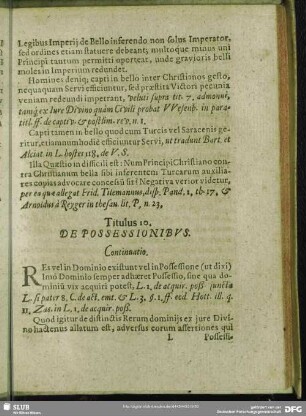 Legibus Imperij de Bello inferendo non solus Imperator,
sed ordines etiam statuere debeant, multoque minus uni
Principi tantum permitti oporteat, unde gravioris belli
moles in Imperium redundet.
Homines deniq; capti in bello inter Christianos gesto,
nequaquam Servi efficiuntur, sed præstita Victori pecunia
veniam redeundi impetrant, veluti supra tit. 7. admonui,
tamq; ex Jure Divino quàm Civili probat VVesenb. in para-
titl. ff. de captiv. & postlim. rev. n. 1.
Capti tamen in bello quod cum Turcis vel Saracenis ge-
ritur, etiamnum hodie efficiuntur Servi, ut tradunt Bart. et
Alciat. in L. hostes 118. de V. S.
Illa Quæstio in difficili est: Num Principi Christiano con-
tra Christianum bella sibi inferentem Turcarum auxilia-
res copias advocare concessũ sit? Negativa verior videtur,
per ea quæ allegat Frid. Tilemannus, disp. Pand. 1, th. 17, &
Arnoldus à Reyger in thesau. lit. P, n. 23,
Titulus 10.
DE POSSESSIONIBVS.
Continuatio.
RES vel in Dominio existunt vel in Possessione (ut dixi)
Imò Dominio semper adhæret Possessio, sine qua do-
miniũ vix acquiri potest, L. 1, de acquir. poss. juncta
L. si pater 8. C. de act. emt. & L. 3. §. 1, ff. eod. Hott. ill. q.
11, Zas. in L. 1, de acquir. poss.
Quod igitur de distinctis Rerum dominijs ex jure Divi-
no hactenus allatum est, adversus eorum assertiones qui
L Possessi-
SLUB
Wir führen Wissen.
gefördert von der
Deutschen Forschungsgemeinschaft